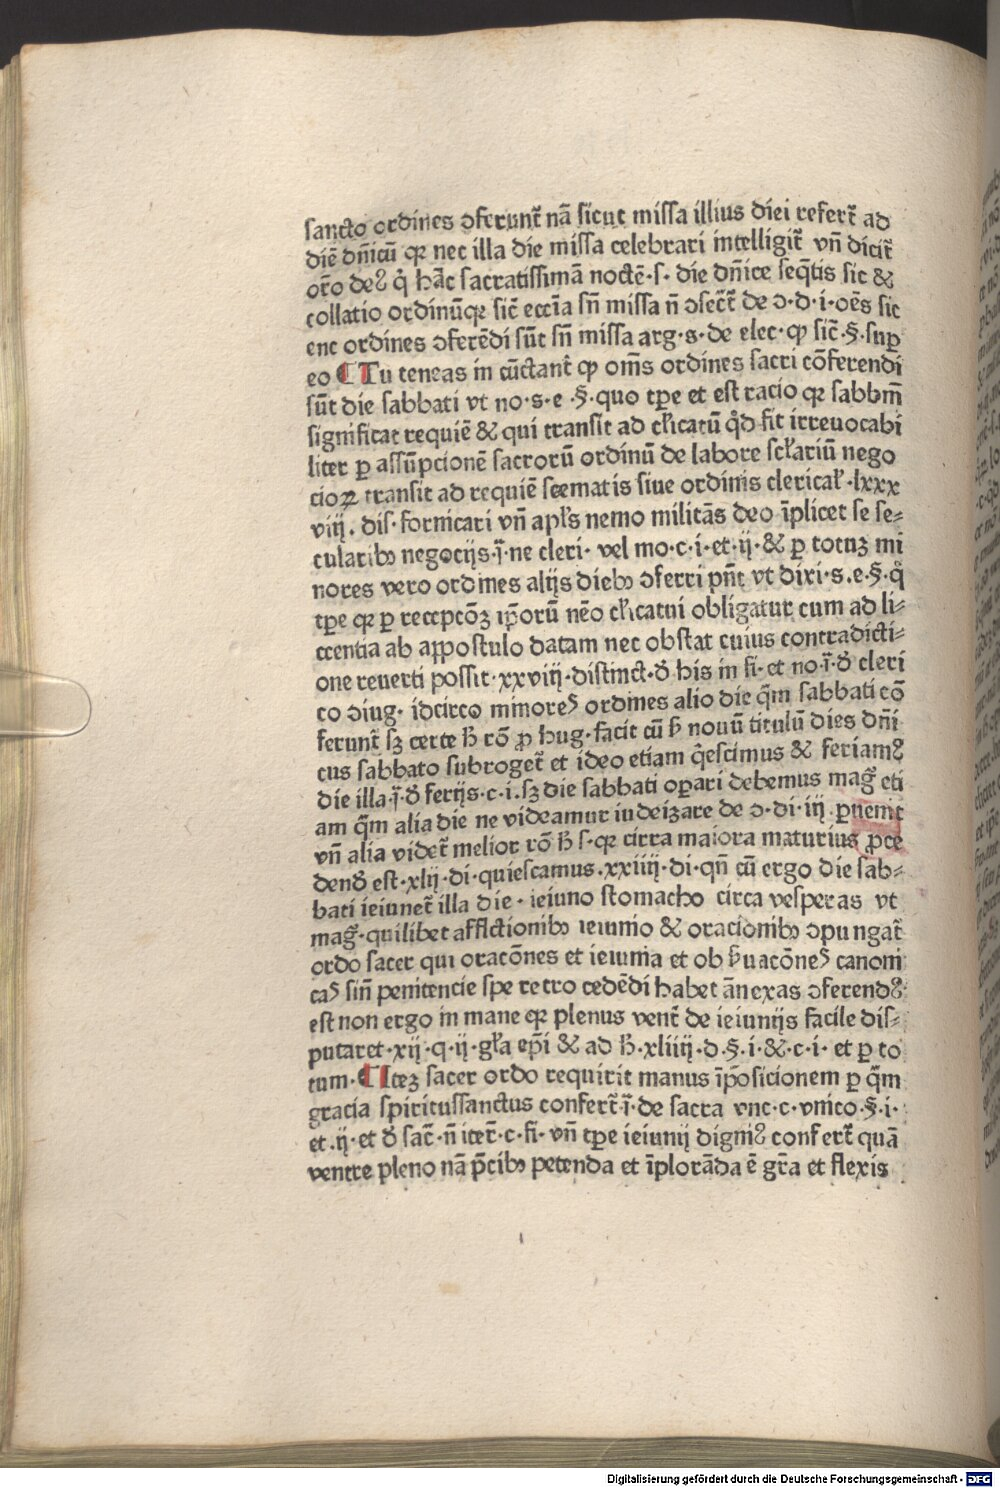 sancto ordines ɔferunt̃ nã sicut missa illius diei refert̃ ad
diẽ dñicũ qꝛ nec illa die missa celebrari intelligit̃ vñ dicit̃
or̃o deꝰ q̇ hãc sacratissimã noctẽ·s· die dñice seq̃tis sic &
collatio ordinũqꝛ sic̃ ecc̃ia sñ missa ñ ɔsec̃t̃ de ɔ·d·i·oẽs sic
enc ordines ɔferẽdi sũt sñ missa arg·s·de elec·ꝙ sic̃·§·suꝑ
eo ¶ Tu teneas in cũctant̃ ꝙ om̃s ordines sacri cõferendi
sũt die sabbati vt no·s·e·§·quo tꝑe et est racio qꝛ sabbm̃
significat requiẽ & qui transit ad cl̃icatũ q̊d fit irreuocabi
liter ꝑ assũpcionẽ sacrorũ ordinũ de labore scl̃ariũ nego
cioꝝ transit ad requiẽ scematis siue ordinis clerical̃·lxxx
viij. dis· fornicari vñ apl̃s nemo militãs deo ĩplicet se se⸗
cularibꝫ negocijs·ĩ·ne cleri· vel mo·c·i·et·ij·& ꝑ totuꝫ mi
nores vero ordines alijs diebꝫ ɔferri pñt vt dixi·s.e.§.q̊
tꝑe qꝛ ꝑ recepcõꝫ ip̃orũ nẽo cl̃icatui obligatur cum ad li⸗
ccentia ab appostulo datam nec obstat cuius contradicti⸗
one reuerti possit·xxviij·distinct·ꝺ̃ his in fi·et no·ĩ·ꝺ̃ cleri
co ɔiug· idcirco minores ordines alio die q̃m sabbati cõ
ferunt̃ sꝫ certe ħ rõ ꝓ hug·facit cũ ħ nouũ titulũ dies dñi
cus sabbato subroget̃ et ideo etiam q̃escimus & feriamꝰ
die illa·ĩ·ꝺ̃ ferijs·c·i·sꝫ die sabbati oꝑari debemus mag̃ eti
am q̃m alia die ne videamur iudeizare de ɔ·di·iij ꝑuenit
vñ alia videt̃ melior rõ ħ s·qꝛ circa maiora maturius ꝓce
denꝺ̃ est·xlij·di·quiescamus·xxiiij·di·qñ cũ ergo die sab⸗
bati ieiunet̃ illa die·ieiuno stomacho circa vesperas vt
mag̃·quilibet afflictionibꝫ ieiunio & oracionibꝫ ɔpungat̃
ordo sacer qui oracões et ieiunia et ob ħuacões canoni
cas siñ penitencie spe retro cedẽdi habet ãnexas ɔferendꝰ
est non ergo in mane qꝛ plenus vent̃ de ieiunijs facile dis⸗
putaret·xij·q·ij·gl̃a ep̃i & ad ħ·xliiij·d·§·i·&·c·i· et ꝑ to
tum·¶ Iteꝫ sacer ordo requirit manus ĩposicionem ꝑ q̃m
gracia spiritussanctus confert̃·ĩ·de sacra vnc·c·vnico·§·i·
et·ij·et ꝺ̃ sac̃·ñ iter̃·c·fi·vñ tꝑe ieiunij digniꝰ confert̃ quã
ventre pleno nã p̃cibꝫ petenda et ĩplorãda ẽ gr̃a et flexis
Digitalisierung gefördert durch die Deutsche Forschungsgemeinschaft - DFG